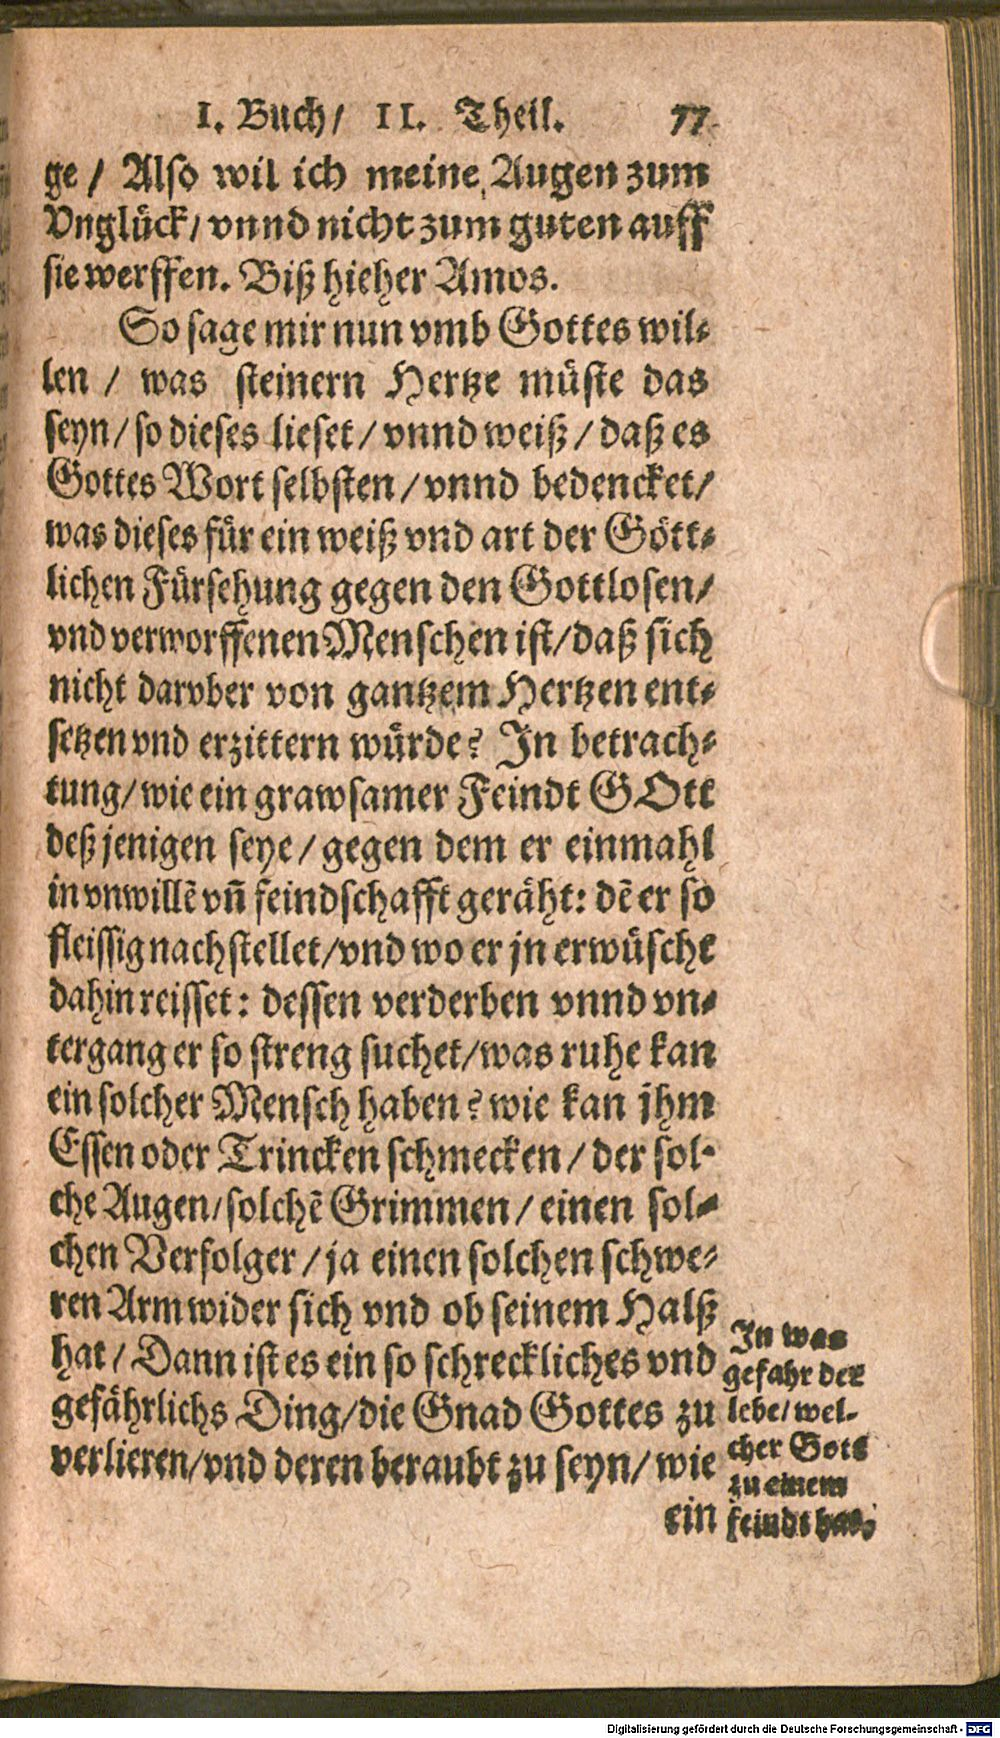 I. Buch/ II. Theil. 77
ge / Also wil ich meine Augen zum
Vnglück/ vnnd nicht zum guten auff
sie werffen. Biß hieher Amos.
So sage mir nun vmb Gottes wil-
len / was steinern Hertze müste das
seyn/ so dieses lieset/ vnnd weiß/ daß es
Gottes Wort selbsten/ vnnd bedencket/
was dieses für ein weiß vnd art der Gött-
lichen Fürsehung gegen den Gottlosen/
vnd verworffenen Menschen ist/ daß sich
nicht darvber von gantzem Hertzen ent-
setzen vnd erzittern würde? In betrach-
tung/ wie ein grawsamer Feindt GOtt
deß jenigen seye/ gegen dem er einmahl
in vnwillẽ vñ feindschafft geräht: dẽ er so
fleissig nachstellet/ vnd wo er jn erwüscht
dahin reisset: dessen verderben vnnd vn-
tergang er so streng suchet/ was ruhe kan
ein solcher Mensch haben? wie kan jhm
Essen oder Trincken schmecken/ der sol-
che Augen/ solchẽ Grimmen/ einen sol-
chen Verfolger/ ja einen solchen schwe-
ren Arm wider sich vnd ob seinem Halß
hat/ Dann ist es ein so schreckliches vnd
gefährlichs Ding/ die Gnad Gottes zu
verlieren/ vnd deren beraubt zu seyn/ wie
ein
In was
gefahr der
lebe/ wel-
cher Gott
zu einem
feindt hat.
Digitalisierung gefördert durch die Deutsche Forschungsgemeinschaft - DFG